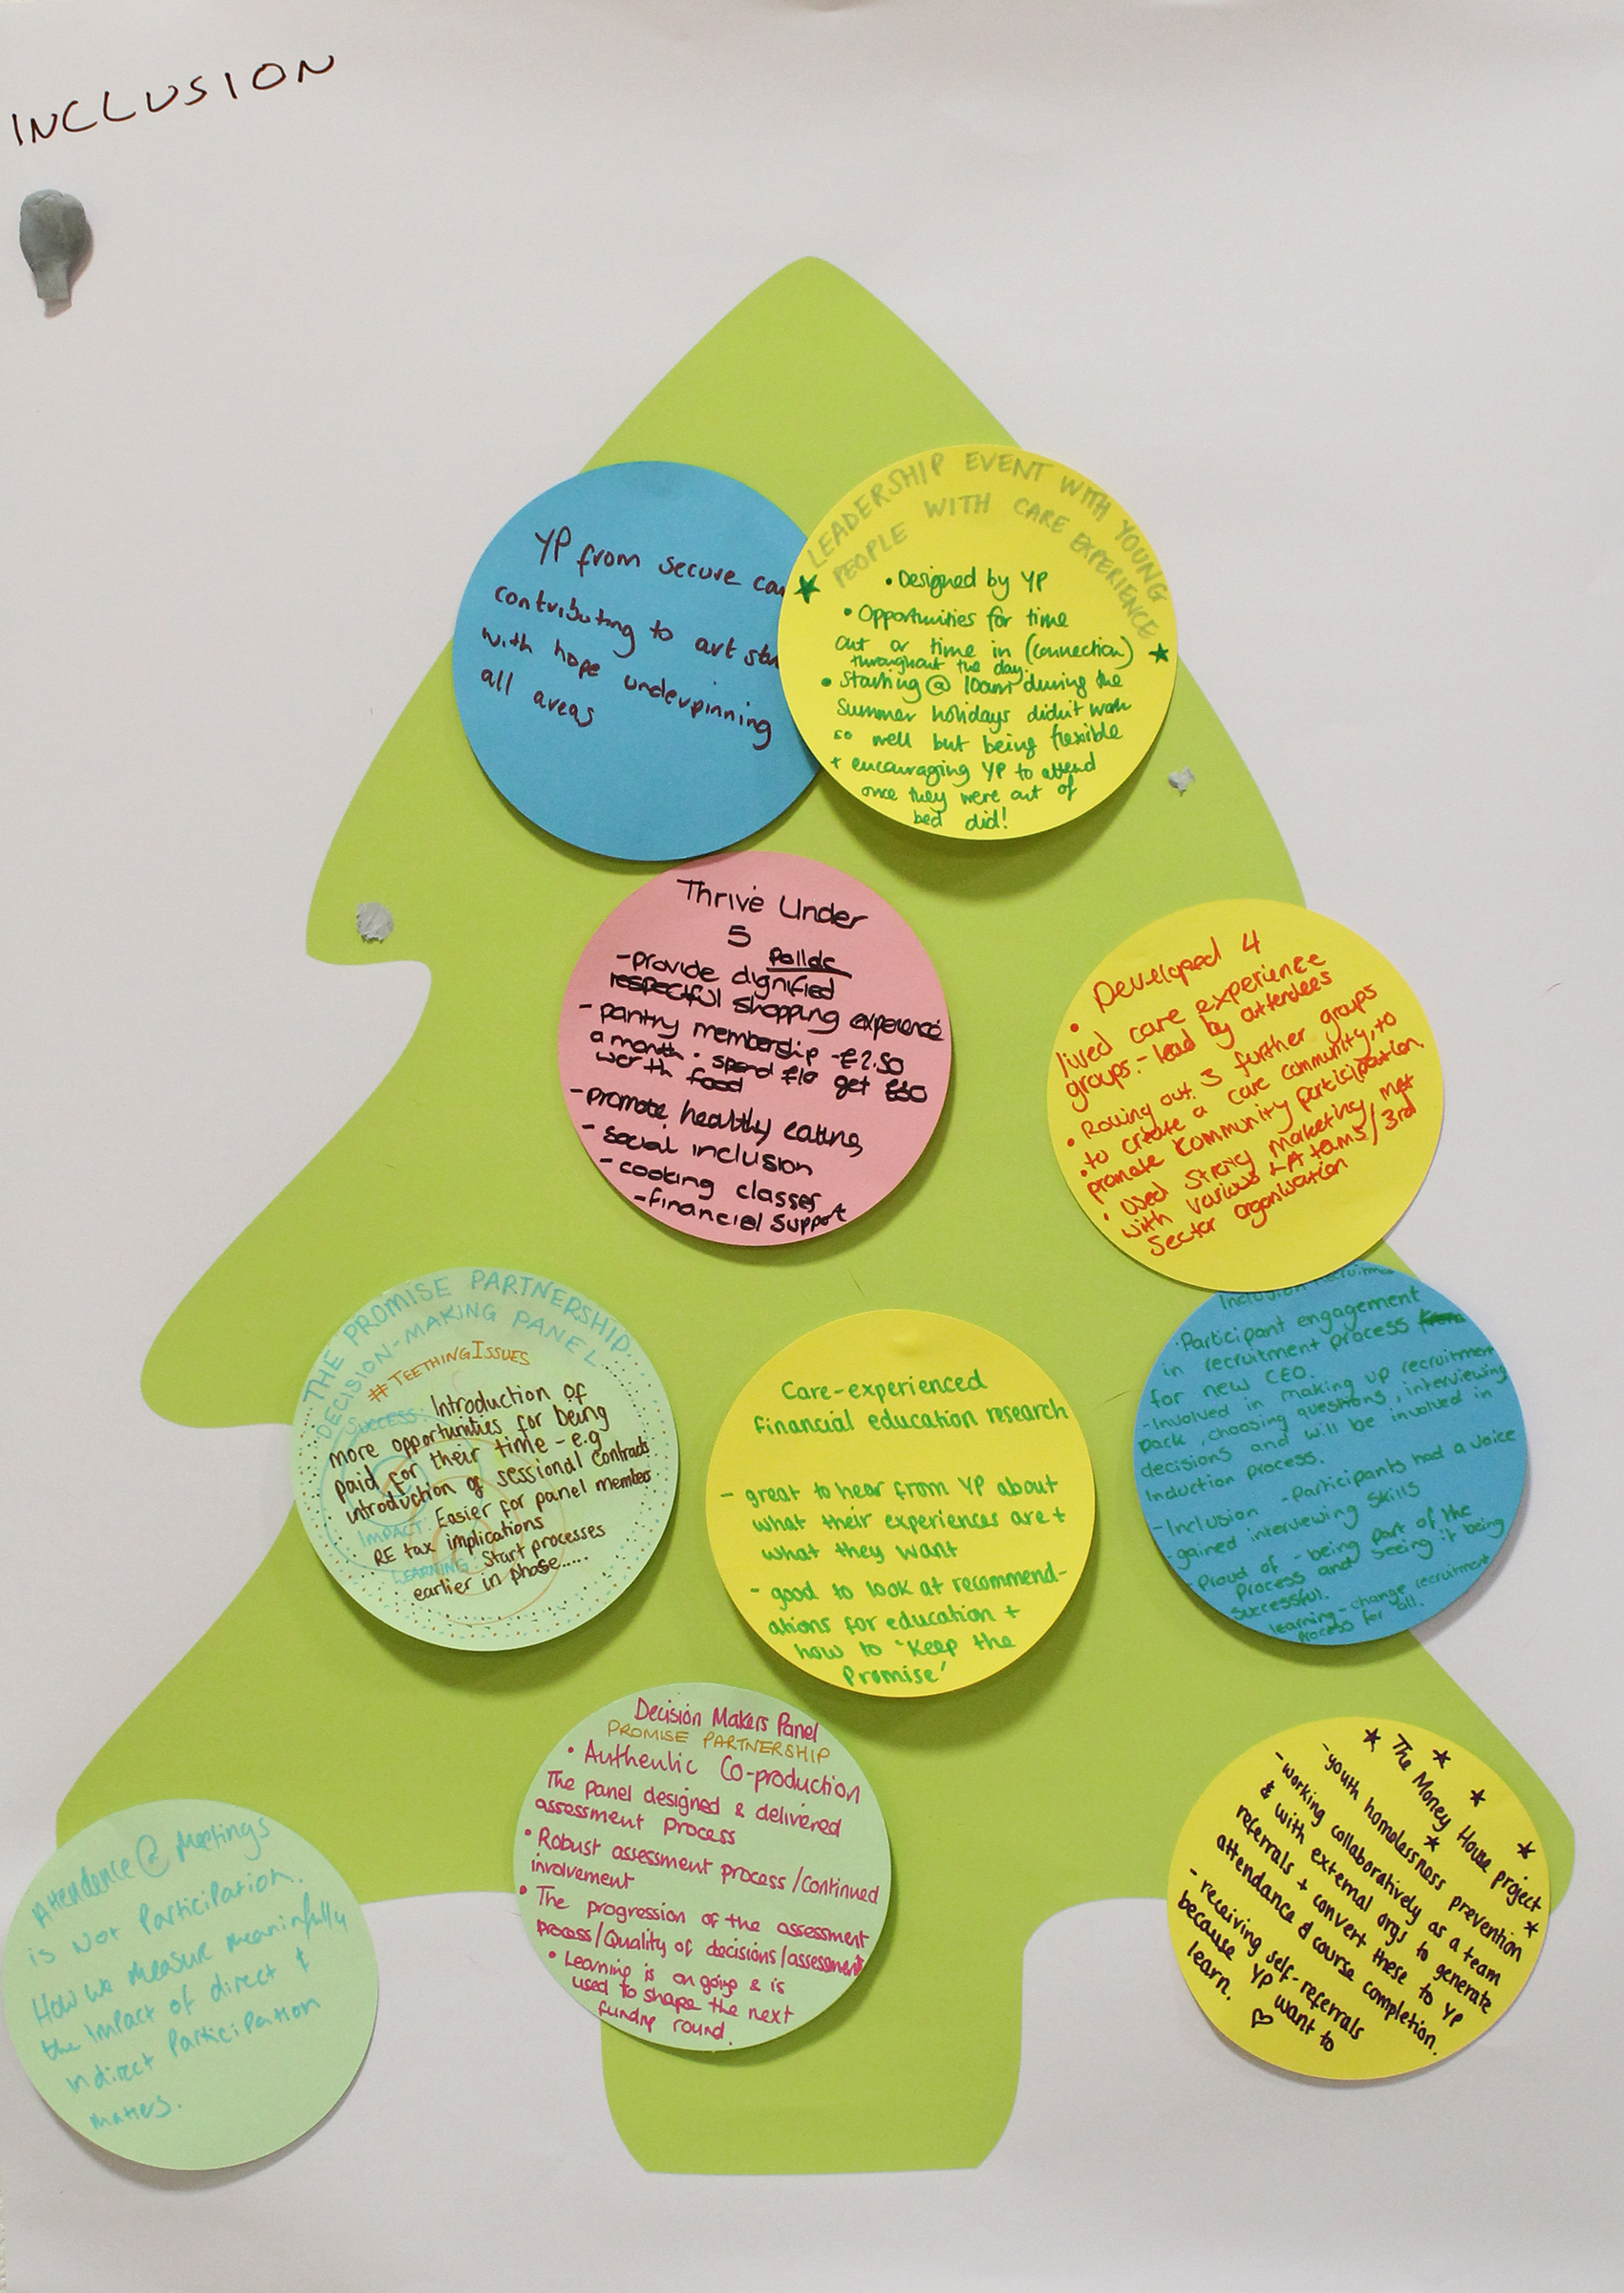 INCLUSION
YP from secure
contributing to art
with hope underpinning
all areas
LEADERSHIP EVENT WITH YOUNG
PEOPLE WITH CARE EXPERIENCE
• Designed by YP
• Opportunities for time
out or time in (connection)
throughout the day.
• Starting @ 10am during the
Summer holidays didn't work
so well but being flexible
+ encouraging YP to attend
once they were out of
bed did!
Thrive Under
5
- provide dignified
respectful shopping experience
- pantry membership - £2.50
a month. spend £10 get
worth food
- promote healthy eating
- social inclusion
- cooking classes
- financial support
• Developed 4
lived care experience
groups - lead by attendees
• Rolling out 3 further groups
to create a care community, to
promote community participation.
• Used Strong marketing, met
with various LA teams/3rd
Sector organisation
THE PROMISE PARTNERSHIP.
DECISION-MAKING PANEL.
#TEETHINGISSUES
SUCCESS: Introduction of
more opportunities for being
paid for their time - e.g
introduction of sessional contracts
IMPACT: Easier for panel members
RE tax implications
LEARNING: Start processes
earlier in phase......
Care-experienced
financial education research
- great to hear from YP about
what their experiences are +
what they want
- good to look at recommend-
ations for education +
how to 'Keep the
Promise'
• Participant engagement
in recruitment process
for new CEO.
- Involved in making up recruitment
pack, choosing questions, interviewing
decisions and will be involved in
Induction process.
- Inclusion - Participants had a voice
- gained interviewing skills
- Proud of - being part of the
process and seeing it being
successful.
learning - change recruitment
process for all.
Decision Makers Panel
PROMISE PARTNERSHIP
• Authentic Co-production
The panel designed & delivered
assessment process
• Robust assessment process/continued
involvement
• The progression of the assessment
process/Quality of decisions/assessment
• Learning is on going & is
used to shape the next
funding round.
The Money House project
- youth homelessness prevention
- working collaboratively as a team
& with external orgs to generate
referrals + convert these to YP
attendance & course completion.
- receiving self-referrals
because YP want to
learn.
Attendence @ Meetings
is Not Participation.
How we measure meaninfully
the impact of direct &
indirect Participation
matters.